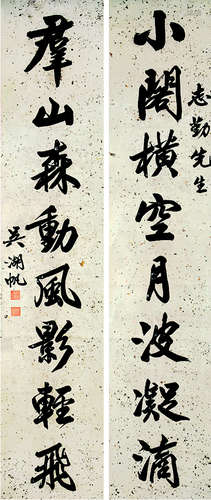 志勤先生
小閣橫空月波凝滴
羣山森動風影輕飛
吳湖帆